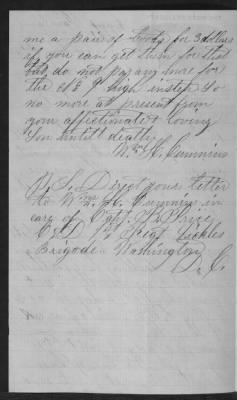 me a pair of boots for 3 dollars
if you can get them for that
but do not pay any more for
the high instep So
no more at present from
your affectionate & loving
Son untill death
Wm H. Cummins
P. S. Direct your letter
to Wm. H. Cummins in
care of Capt. Price
Co D 1st Regt Sickles
Brigade Washington
D. C.